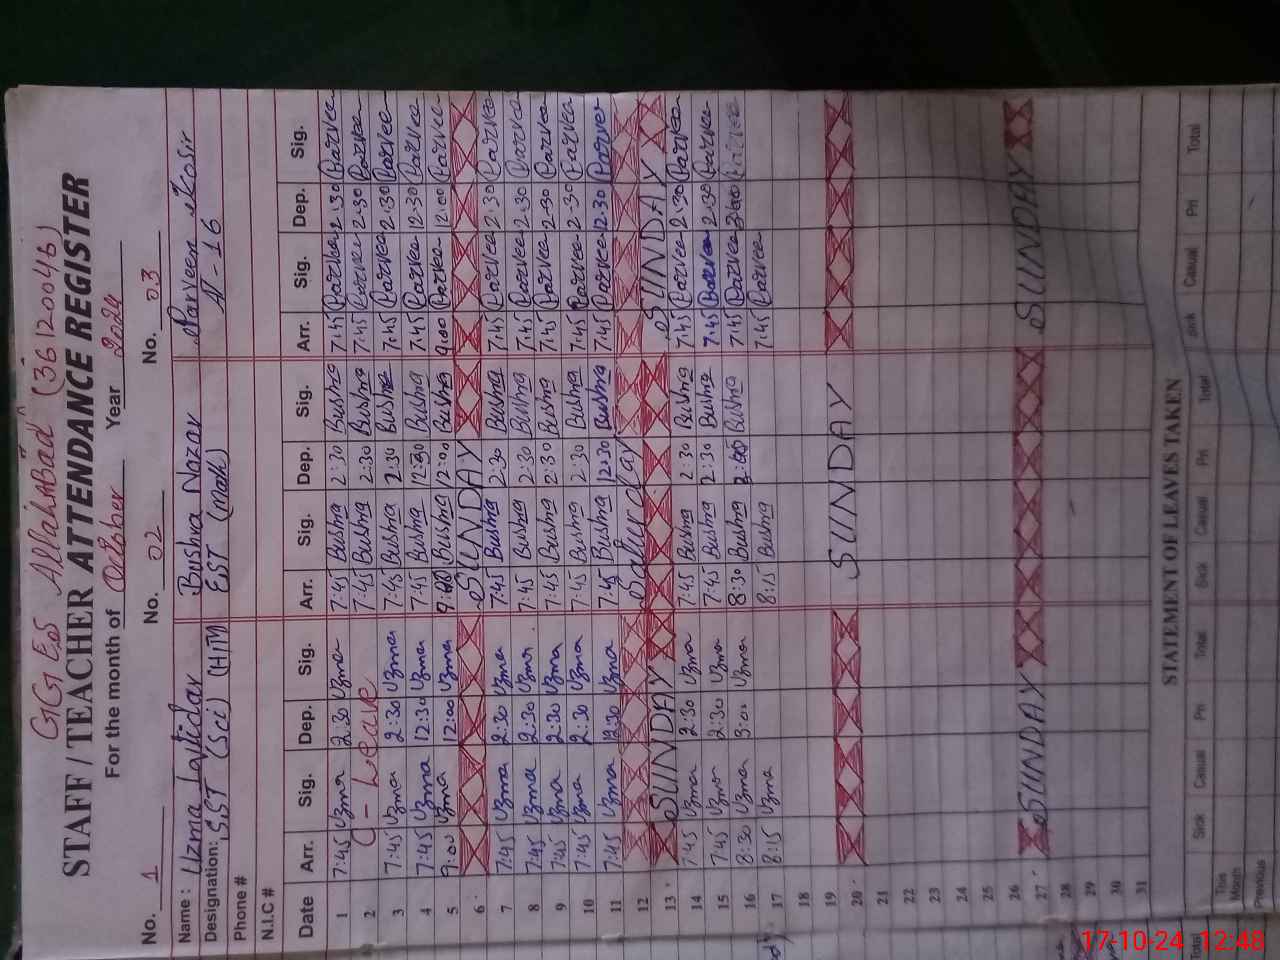 GGE.S Allahabad (36120046)
STAFF / TEACHER ATTENDANCE REGISTER
For the month of October Year 2024
No. 1 No. 02 No. 03
Name : Uzma Bushra Nazar Parveen Kosir
Designation: SST (Sci) (H/M) EST (Math) AT-16
Phone #
N.I.C #
Date Arr. Sig. Dep. Sig. Arr. Sig. Dep. Sig. Arr. Sig. Dep. Sig.
1 7:45 Uzma 2:30 Uzma 7:45 Bushra 2:30 Bushra 7:45 Parvee 2:30 Parvee
2 C - Leave 7:45 Bushra 2:30 Bushra 7:45 Parvee 2:30 Parvee
3 7:45 Uzma 2:30 Uzma 7:45 Bushra 2:30 Bushra 7:45 Parvee 2:30 Parvee
4 7:45 Uzma 12:30 Uzma 7:45 Bushra 12:30 Bushra 7:45 Parvee 12:30 Parvee
5 9:00 Uzma 12:00 Uzma 9:00 Bushra 12:00 Bushra 9:00 Parvee 12:00 Parvee
6 SUNDAY
7 7:45 Uzma 2:30 Uzma 7:45 Bushra 2:30 Bushra 7:45 Parvee 2:30 Parvee
8 7:45 Uzma 2:30 Uzma 7:45 Bushra 2:30 Bushra 7:45 Parvee 2:30 Parvee
9 7:45 Uzma 2:30 Uzma 7:45 Bushra 2:30 Bushra 7:45 Parvee 2:30 Parvee
10 7:45 Uzma 2:30 Uzma 7:45 Bushra 2:30 Bushra 7:45 Parvee 2:30 Parvee
11 7:45 Uzma 12:30 Uzma 7:45 Bushra 12:30 Bushra 7:45 Parvee 12:30 Parvee
12 Saturday
13 SUNDAY SUNDAY
14 7:45 Uzma 2:30 Uzma 7:45 Bushra 2:30 Bushra 7:45 Parvee 2:30 Parvee
15 7:45 Uzma 2:30 Uzma 7:45 Bushra 2:30 Bushra 7:45 Parvee 2:30 Parvee
16 8:30 Uzma 3:00 Uzma 8:30 Bushra Bushra 7:45 Parvee Parvee
17 8:15 Uzma 8:15 Bushra 7:45 Parvee
18
19
20 SUNDAY
21
22
23
24
25
26
27 SUNDAY SUNDAY
28
29
30
31
STATEMENT OF LEAVES TAKEN
Sick Casual Pri Total Sick Casual Pri Total Sick Casual Pri Total
This Month
Previous
Total
17-10-24 12:48